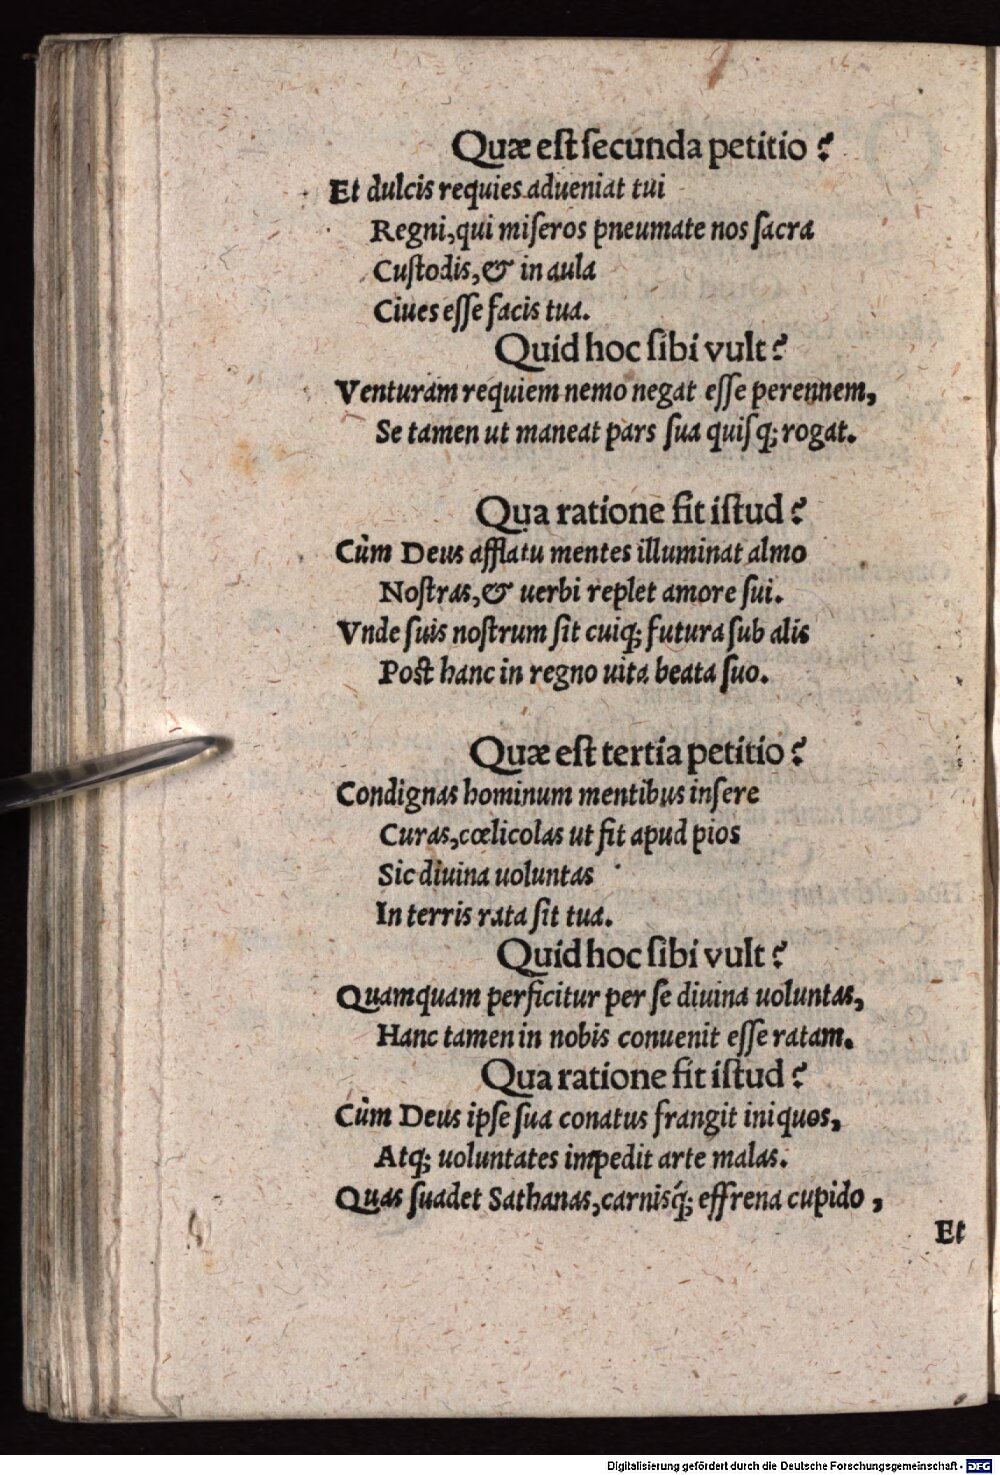 Quæ est secunda petitio?
Et dulcis requies adueniat tui
Regni, qui miseros pneumate nos sacra
Custodis, & in aula
Ciues esse facis tua.
Quid hoc sibi vult?
Venturam requiem nemo negat esse perennem,
Se tamen ut maneat pars sua quisq; rogat.
Qua ratione fit istud?
Cùm Deus afflatu mentes illuminat almo
Nostras, & uerbi replet amore sui.
Vnde suis nostrum sit cuiq; futura sub alis
Post hanc in regno uita beata suo.
Quæ est tertia petitio?
Condignas hominum mentibus insere
Curas, cœlicolas ut fit apud pios
Sic diuina uoluntas
In terris rata sit tua.
Quid hoc sibi vult?
Quamquam perficitur per se diuina uoluntas,
Hanc tamen in nobis conuenit esse ratam.
Qua ratione fit istud?
Cùm Deus ipse sua conatus frangit iniquos,
Atq; uoluntates impedit arte malas.
Quas suadet Sathanas, carnisq́; effrena cupido,
Et
Digitalisierung gefördert durch die Deutsche Forschungsgemeinschaft - DFG